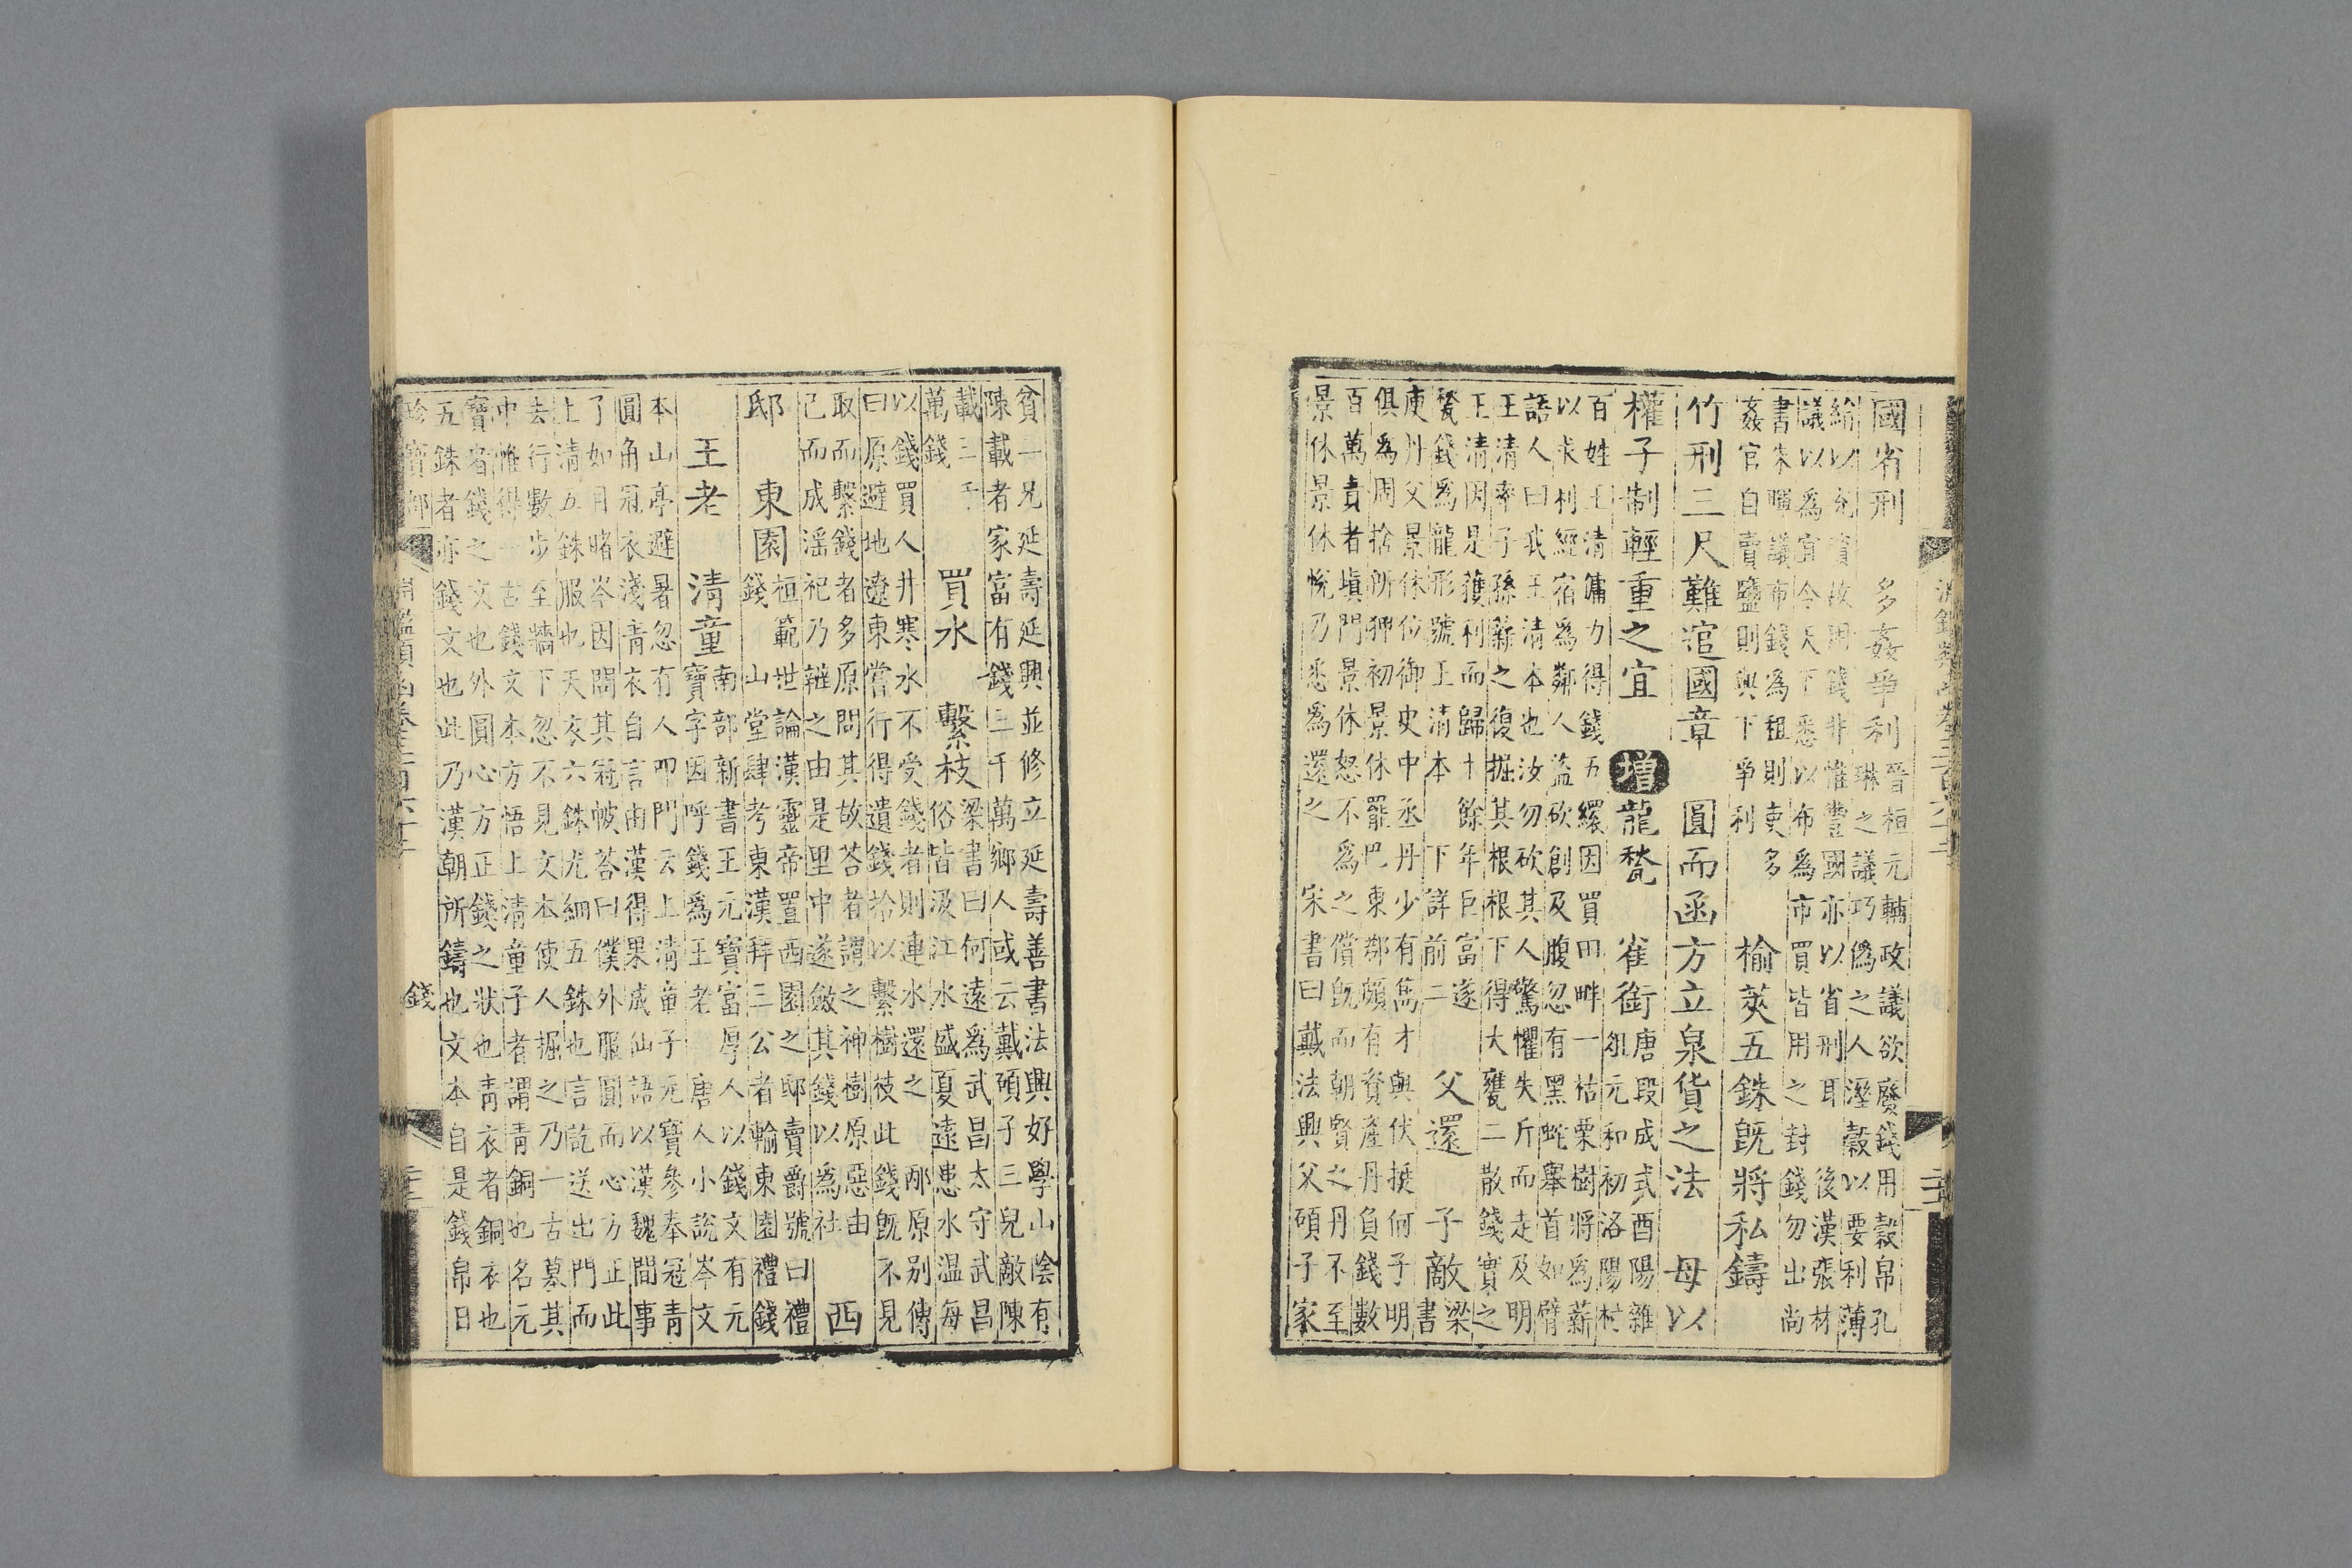 國省刑　多姦爭利晉桓元輔政議欲廢錢用穀帛孔
琳之議巧偽之人溼穀以要利薄
絹以充資故用錢非惟豐國亦以省刑耳　後漢張林
議以為宜令天下悉以布為市買皆用之封錢勿出尚
書朱暉議布錢為租則吏多
姦官自賣鹽則與下爭利　榆莢五銖既將私鑄
竹刑三尺難逭國章　圓而函方立泉貨之法　母以
權子制輕重之宜　增龍甃　雀銜唐段成式酉陽雜
俎元和初洛陽村
百姓王清傭力得錢五鐶因買田畔一枯栗樹將為薪
以求利經宿為鄰人盜砍創及腹忽有黑蛇舉首如臂
語人曰我王清本也汝勿砍其人驚懼失斤而走及明
王清率子孫薪之復掘其根根下得大甕二散錢實之
王清因是獲利而歸十餘年巨富遂
甃錢為龍形號王清本　下詳前二　父還　子敵梁
書
庾丹父景休位御史中丞丹少有雋才與伏挺何子明
俱為周捨所狎初景休罷巴東郡頗有資產丹負錢數
百萬責者填門景休怒不為之償既而朝賢之丹不至
景休景休悅乃悉為還之　宋書曰戴法興父碩子家
貧二兄延壽延興並修立延壽善書法興好學山陰有
陳載者家富有錢三千萬鄉人或云戴碩子三兒敵陳
載三千
萬錢　買水　繫枝梁書曰何遠為武昌太守武昌
俗皆汲江水盛夏遠患水溫每
以錢買人井寒水不受錢者則連水還之　邴原別傳
曰原避地遼東嘗行得遺錢拾以繫樹枝此錢既不見
取而繫錢者多原問其故荅者謂之神樹原惡由
己而成淫祀乃辨之由是里中遂斂其錢以為社　西
邸　東園桓範世論漢靈帝置西園之邸賣爵號曰禮
錢　山堂肆考東漢拜三公者輸東園禮錢
王老　清童南部新書王元寶富厚人以錢文有元
寶字因呼錢為王老　唐人小說岑文
本山亭避暑忽有人叩門云上清童子元寶參奉冠青
圓角冠衣淺青衣自言由漢得果成仙語以漢魏間事
了如目睹岑因問其冠帔荅曰僕外服圓而心方正此
上清五銖服也天衣六銖尤細五銖也言訖送出門而
去行數步至牆下忽不見文本使人掘之乃一古墓其
中惟得一古錢文本方悟上清童子者謂青銅也名元
寶者錢之文也外圓心方正錢之狀也青衣者銅衣也
五銖者亦錢文也此乃漢朝所鑄也文本自是錢帛日
錢